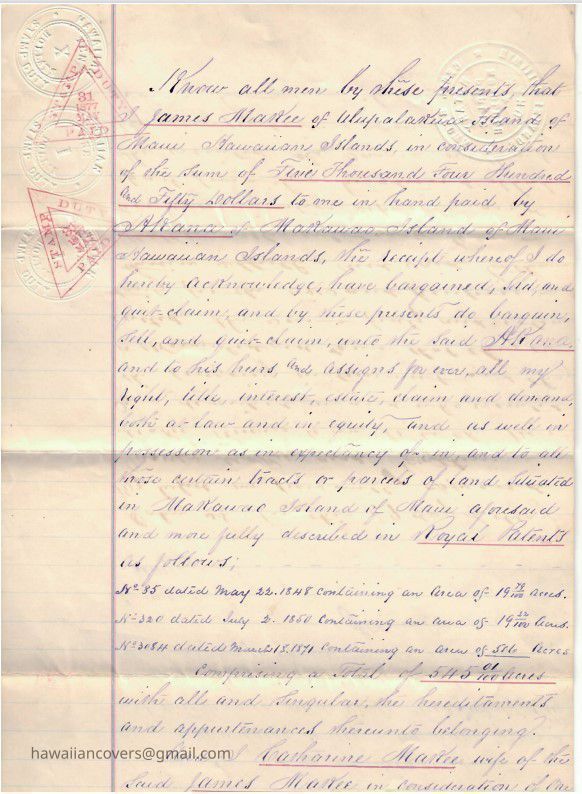 Know all men by these presents, that
I James Makee of Ulupalakua Island of
Maui Hawaiian Islands, in consideration
of the sum of Five Thousand Four Hundred
and Fifty Dollars to me in hand paid by
AKana of Makawao, Island of Maui
Hawaiian Islands, the receipt whereof I do
hereby acknowledge, have bargained, Sold, and
quit-claim, and by these presents do bargain,
Sell, and quit-claim, unto the said AKana
and to his heirs, and assigns for ever, all my
right, title, interest, estate, claim and demand,
both at law and in equity, and as well in
possession as in expectancy of, in, and to all
those certain tracts or parcels of land situated
in Makawao Island of Maui aforesaid
and more fully described in Royal Patents
as follows;
No 35 dated May 22. 1848 containing an Area of 19 79/100 acres.
No 320 dated July 2. 1850 containing an area of 19 22/100 Acres.
No 3084 dated March 13. 1871 containing an area of 506 Acres
Comprising a Total of 545 01/100 acres
with all and singular, the hereditaments
and appurtenances thereunto belonging.
I Catharine Makee wife of the
said James Makee in consideration of One
HAWAIIAN
STAMP
DUTY
31
1877
MAY
PAID
DUTY
STAMP
PAID
hawaiiancovers@gmail.com